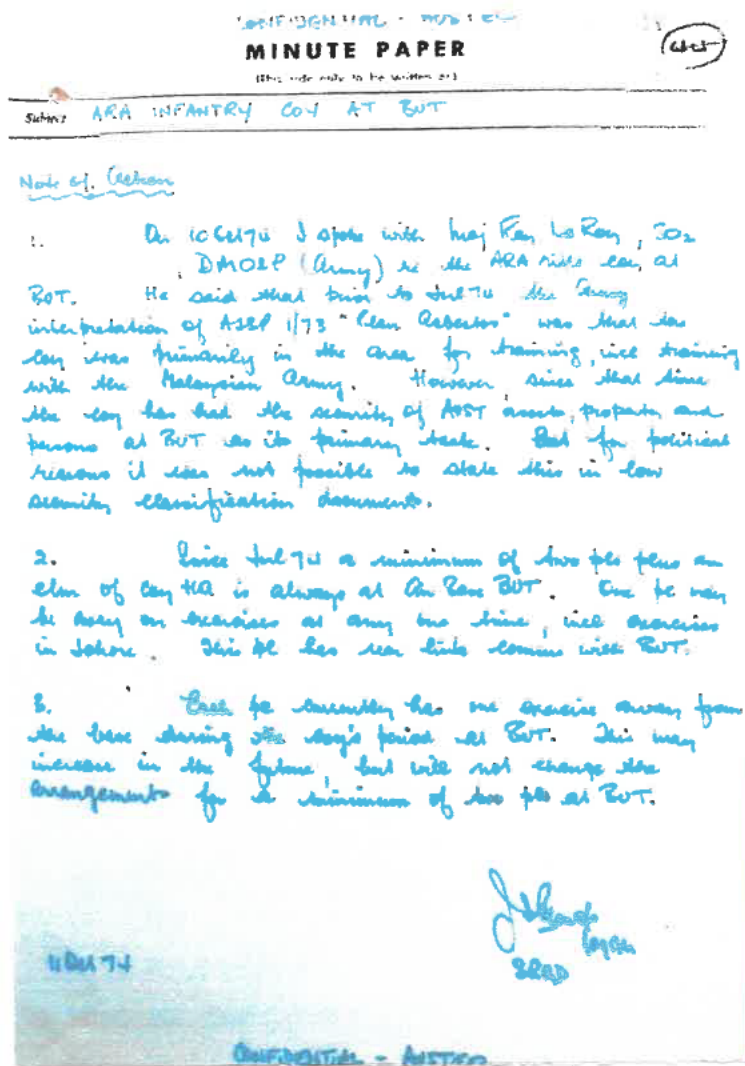 CONFIDENTIAL - AUSTEO
MINUTE PAPER
(This side only to be written on)
Subject ARA INFANTRY COY AT BUT
Note of Action
1. On 10 Oct 74 I spoke with Maj Ken Le Ray, SO2
, DMO&P (Army) re the ARA rifle coy at
BUT. He said that prior to Jul 74 the Army
interpretation of 1/73 "Plan Asbestos" was that the
coy was primarily in the area for training, incl training
with the Malaysian Army. However since that time
the coy has had the security of AUST assets, property and
persons at BUT as its primary task. But for political
reasons it was not possible to state this in low
security classification documents.
2. Since Jul 74 a minimum of two pls plus an
elm of coy HQ is always at Air Base BUT. One pl may
be away on exercises at any one time, incl exercises
in Johore. This pl has rear links comms with BUT.
3. Each pl currently has one exercise away from
the base during the coy's period at BUT. This may
increase in the future, but will not change the
arrangements for a minimum of two pls at BUT.
74
CONFIDENTIAL - AUSTEO